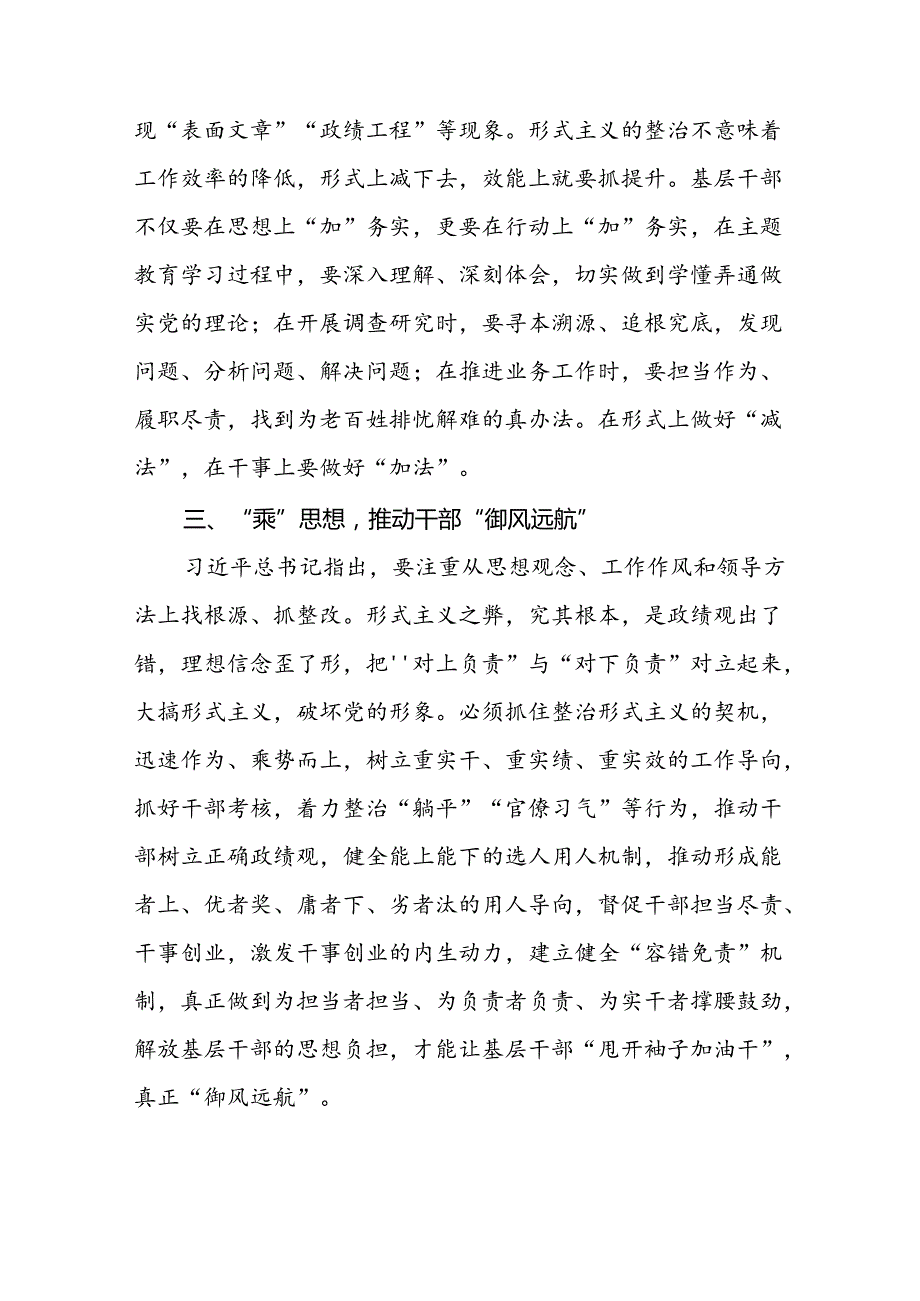 现“表面文章”“政绩工程”等现象。形式主义的整治不意味着
工作效率的降低，形式上减下去，效能上就要抓提升。基层干部
不仅要在思想上“加”务实，更要在行动上“加”务实，在主题
教育学习过程中，要深入理解、深刻体会，切实做到学懂弄通做
实党的理论；在开展调查研究时，要寻本溯源、追根究底，发现
问题、分析问题、解决问题；在推进业务工作时，要担当作为、
履职尽责，找到为老百姓排忧解难的真办法。在形式上做好“减
法”，在干事上要做好“加法”。
三、“乘”思想，推动干部“御风远航”
习近平总书记指出，要注重从思想观念、工作作风和领导方
法上找根源、抓整改。形式主义之弊，究其根本，是政绩观出了
错，理想信念歪了形，把''对上负责”与“对下负责”对立起来，
大搞形式主义，破坏党的形象。必须抓住整治形式主义的契机，
迅速作为、乘势而上，树立重实干、重实绩、重实效的工作导向，
抓好干部考核，着力整治“躺平”“官僚习气”等行为，推动干
部树立正确政绩观，健全能上能下的选人用人机制，推动形成能
者上、优者奖、庸者下、劣者汰的用人导向，督促干部担当尽责、
干事创业，激发干事创业的内生动力，建立健全“容错免责”机
制，真正做到为担当者担当、为负责者负责、为实干者撑腰鼓劲，
解放基层干部的思想负担，才能让基层干部“甩开袖子加油干”，
真正“御风远航”。